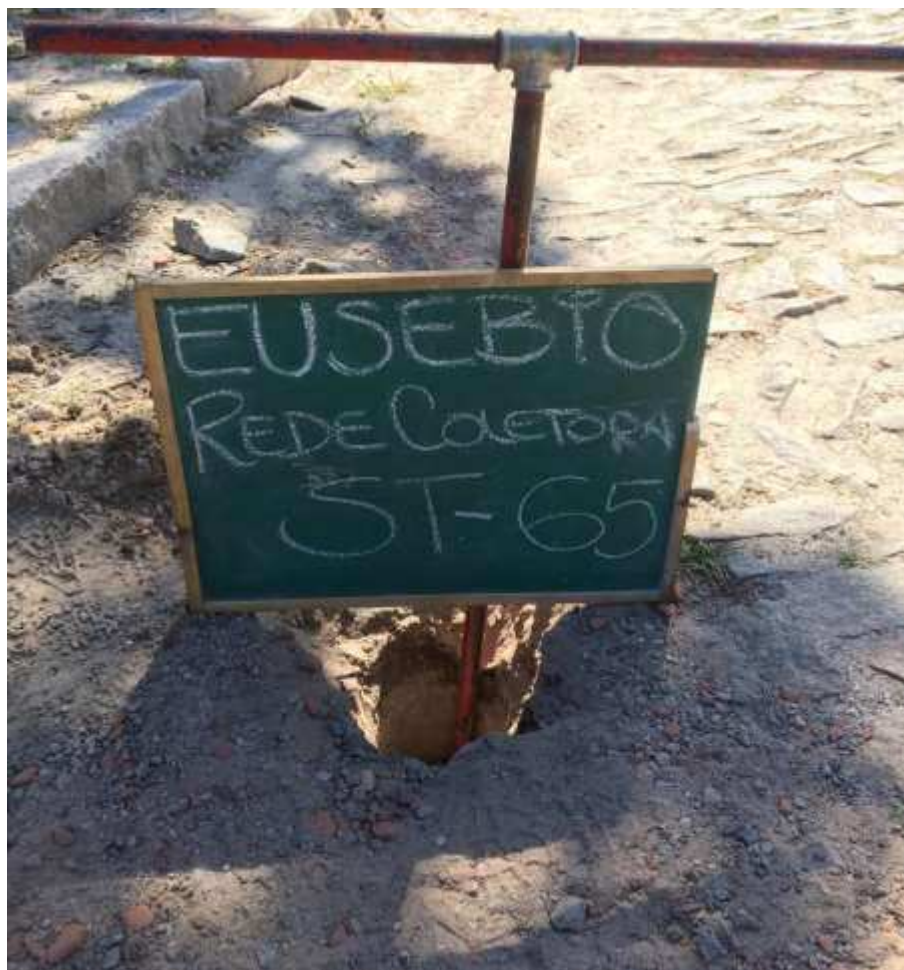 EUSEBIO
REDE COLETORA
ST-65